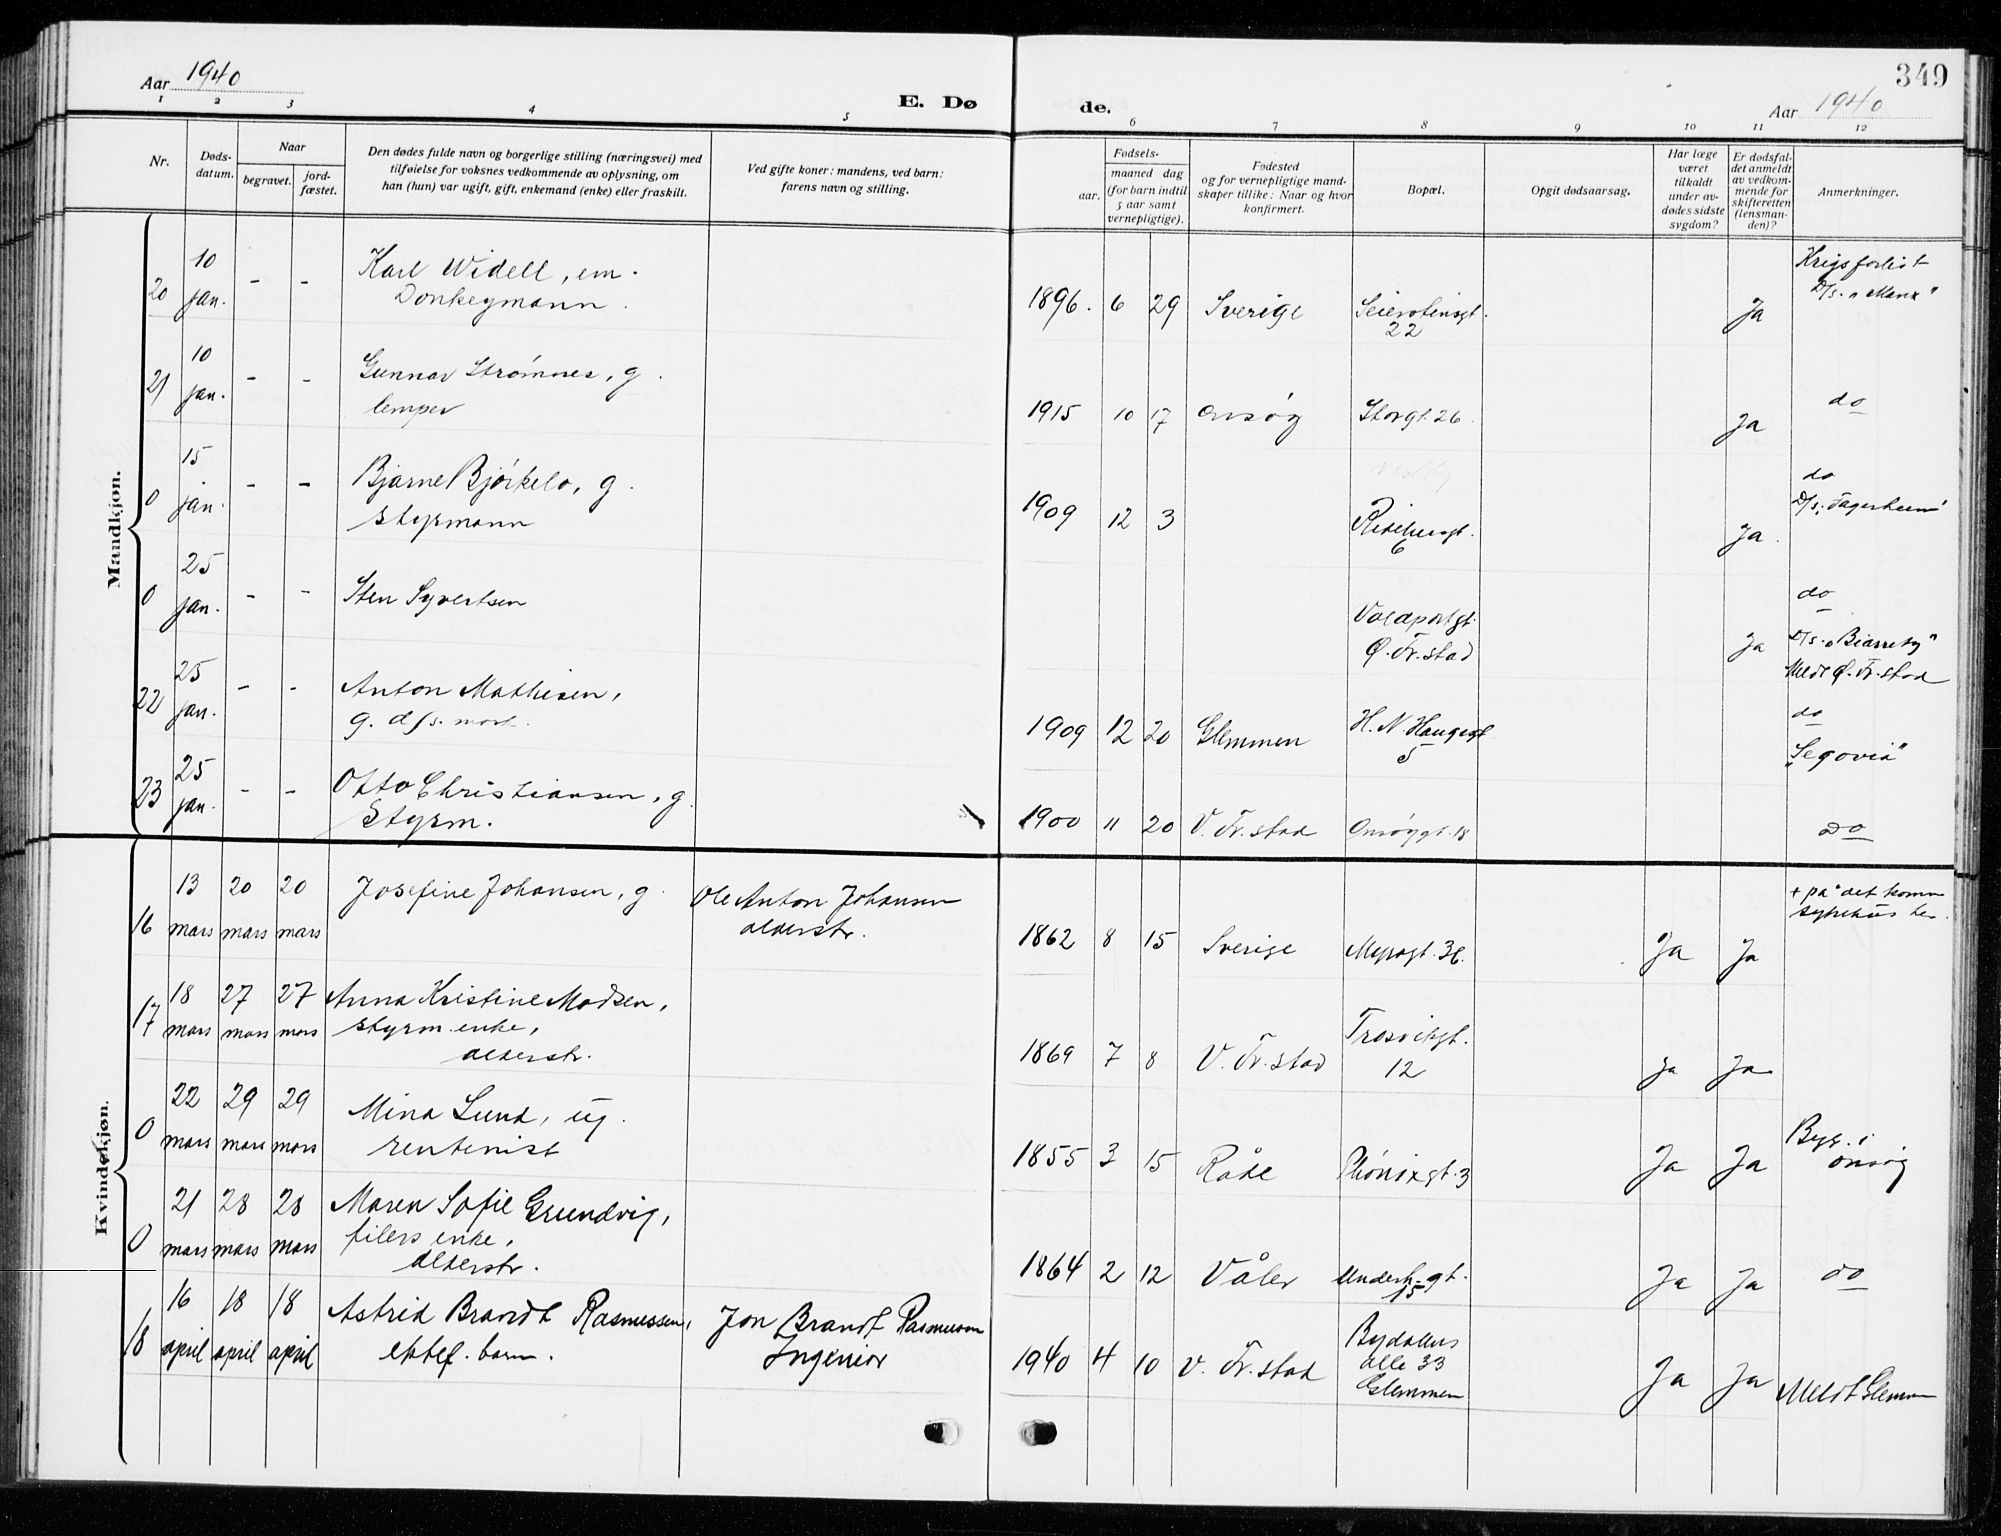 Aar 1940
E. Dø
de.
349
Aar 1940
1 2 3 4 5 6 7 8 9 10 11 12
Nr.
Døds-
datum.
Naar
begravet.
jord-
fæstet.
Den dødes fulde navn og borgerlige stilling (næringsvei) med
tilføielse for voksnes vedkommende av oplysning, om
han (hun) var ugift, gift, enkemand (enke) eller fraskilt.
Ved gifte koner: mandens, ved barn:
farens navn og stilling.
Fødsels-
aar.
maaned dag
(for barn indtil
5 aar samt
vernepligtige).
Fødested
og for vernepligtige mand-
skaper tillike: Naar og hvor
konfirmert.
Bopæl.
Opgit dødsaarsag.
Har læge
været
tilkaldt
under av-
dødes sidste
sygdom?
Er dødsfal-
det anmeldt
av vedkom-
mende for
skifteretten
(lensman-
den)?
Anmerkninger.
Mandkjøn.
20 10 jan. - - Karl Widell, em.
Donkeymann.
1896. 6 29 Sverige Seierstensgt.
22
Ja
Krigsforlist
D/s. "Manx"
21 10 jan. - - Gunnar Strømnes, g.
lemper
1915 10 17 Onsøy Storgt. 26. Ja do
0 15 jan. - - Bjarne Bjørkelo, g.
styrmann
1909 12 3
6
Ja.
do
D/s. "Fagerheim"
0 25 jan. - - Sten Syvertsen
Voldportgt.
Ø. Fr.stad
Ja
do
D/s. "Biarritz"
Meldt Ø. Fr.stad
22 25 jan. - - Anton Mathisen,
g. d/s.
1909 12 20 Glemmen H. N. Haugesgt
5
do
"Segovia"
23 25 jan. - - Otto Christiansen, g.
Styrm.
1900 11 20 V. Fr.stad Onsøygt. 18 do
Kvindekjøn.
16 13 mars 20 mars 20 mars Josefine Johansen, g. Ole Anton Johansen
alderstr.
1862 8 15 Sverige Myragt. 36. Ja Ja
+ på det komm
sykehus her.
17 18 mars 27 mars 27 mars Anna Kristine Madsen,
styrm. enke,
alderstr.
1869 7 8 V. Fr.stad Trosvikgt.
12
Ja Ja
0 22 mars 29 mars 29 mars Mina Lund, ug.
rentenist
1855 3 15 Råde Phønixgt. 3 Ja Ja
Begr. i
Onsøy
0 21 mars 28 mars 28 mars Maren Sofie Grundvig,
filers enke,
alderstr.
1864 2 12 Våler Underh.gt.
15
Ja Ja do
18 16 april 18 april 18 april Astrid Brandt Rasmussen,
ektef. barn.
Jon Brandt Rasmussen
Ingeniør
1940 4 10 V. Fr.stad Bydalens
alle 33
Glemmen
Ja Ja Meldt Glemm